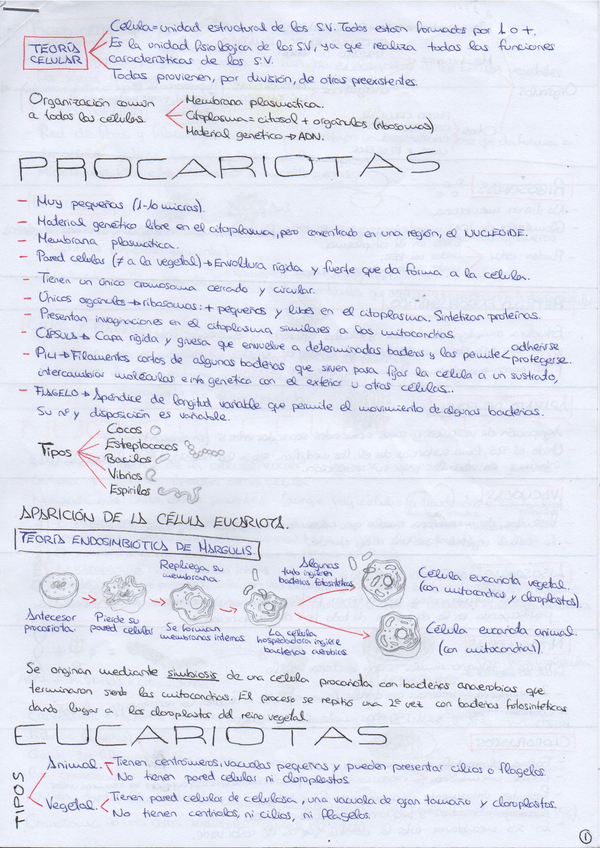 TEORÍA CELULAR
Célula = unidad estructural de los S.V. Todos están formados por 1 o +.
Es la unidad fisiológica de los S.V, ya que realiza todas las funciones
características de los S.V.
Todas provienen, por división, de otras preexistentes.
Organización común
a todas las células.
Membrana plasmática.
Citoplasma = citosol + orgánulos (ribosomas)
Material genético → ADN.
PROCARIOTAS
– Muy pequeñas (1-10 micras).
– Material genético libre en el citoplasma, pero concentrado en una región, el NUCLEOIDE.
– Membrana plasmática.
– Pared celular (≠ a la vegetal) → Envoltura rígida y fuerte que da forma a la célula.
– Tienen un único cromosoma cerrado y circular.
– Únicos orgánulos → ribosomas: + pequeños y libres en el citoplasma. Sintetizan proteínas.
– Presentan invaginaciones en el citoplasma similares a las mitocondrias
– CÁPSULA → Capa rígida y gruesa que envuelve a determinadas bacterias y las permite
adherirse
protegerse.
– PILI → Filamentos cortos de algunas bacterias que sirven para fijar la célula a un sustrato,
intercambiar moléculas e info genética con el exterior u otras células...
– FLAGELO → Apéndice de longitud variable que permite el movimiento de algunas bacterias.
Su nº y disposición es variable.
Tipos
Cocos
Estreptococos
Bacilos
Vibrios
Espirilos
APARICIÓN DE LA CÉLULA EUCARIOTA.
TEORÍA ENDOSIMBIÓTICA DE MARGULIS.
Antecesor
procariota.
Pierde su
pared celular
Repliega su
membrana.
Se forman
membranas internas
La célula
hospedadora ingiere
bacterias aerobias
Algunas
tmb ingieren
bacterias fotosintéticas
Célula eucariota vegetal.
(con mitocondrias y cloroplastos)
Célula eucariota animal.
(con mitocondrias).
Se originan mediante simbiosis de una célula procariota con bacterias anaerobias que
terminaron siendo las mitocondrias. El proceso se repitió una 2ª vez con bacterias fotosintéticas
dando lugar a los cloroplastos del reino vegetal.
EUCARIOTAS
TIPOS
Animal.
Tienen centrómeros, vacuolas pequeñas y pueden presentar cilios o flagelos.
No tienen pared celular ni cloroplastos.
Vegetal.
Tienen pared celular de celulosa, una vacuola de gran tamaño y cloroplastos.
No tienen centriolos, ni cilios, ni flagelos.
1